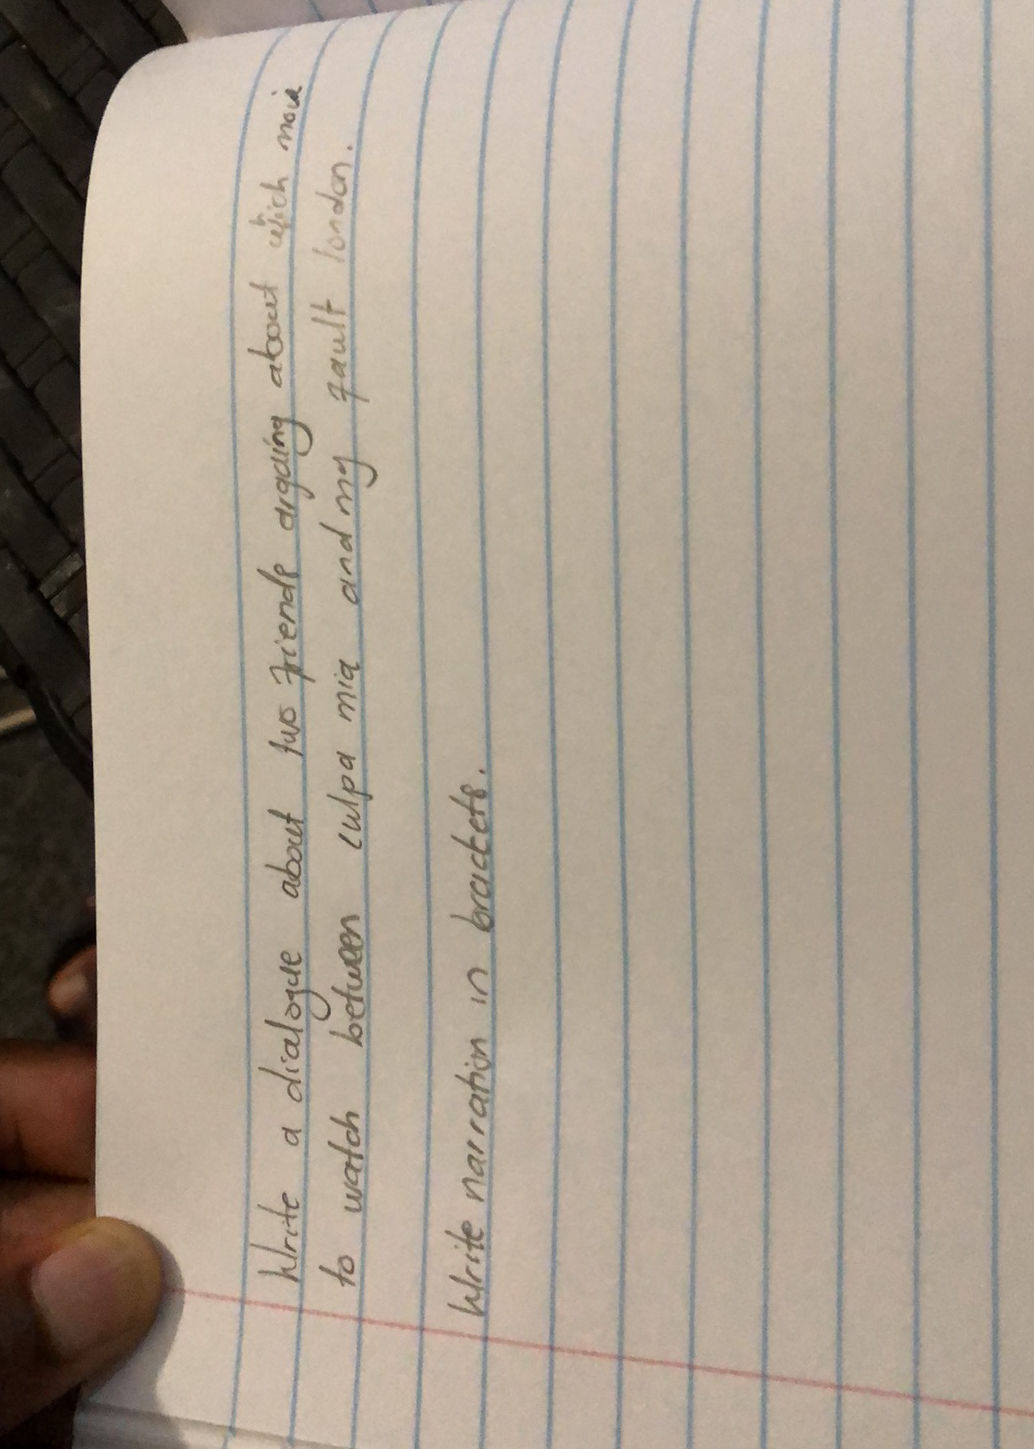 Write a dialogue about two friends arguing about which movie
to watch between culpa mia and my fault london.
Write narration in brackets.